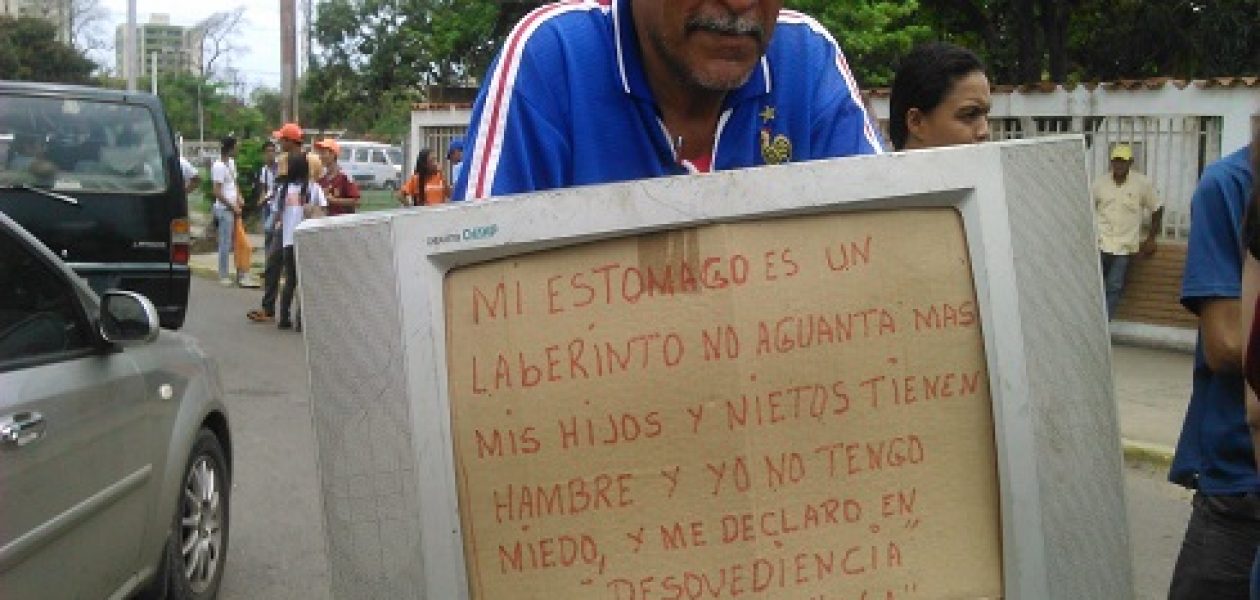 MI ESTOMAGO ES UN
LABERINTO NO AGUANTA MAS
MIS HIJOS Y NIETOS TIENEN
HAMBRE Y YO NO TENGO
MIEDO, Y ME DECLARO EN
"DESOVEDIENCIA"